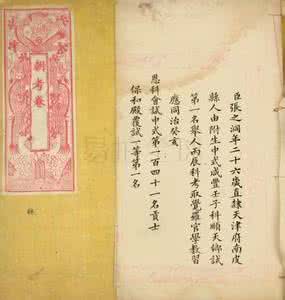 朝考卷
臣張之洞年二十六歲直隸天津府南皮
縣人由附生中式咸豐壬子科順天鄉試
第一名舉人丙辰科考取覺羅官學教習
應同治癸亥
恩科會試中式第一百四十一名貢士
保和殿覆試一等第一名